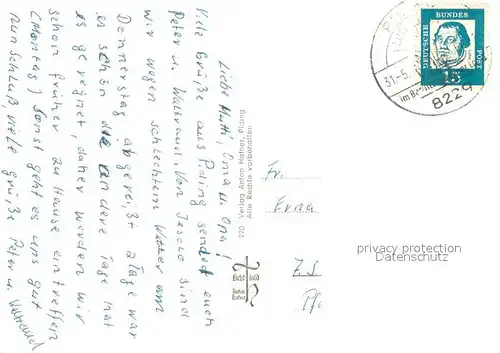 Liebe Mutti, Oma u. Opa!
Viele Grüße aus Piding sendet euch
Peter u. Waltraud. Von Jesolo sind
wir wegen schlechtem Wetter am
Donnerstag abgereißt 2 Tage war
es schön die andere Tage hat
es geregnet, daher werden wir
schon früher zu Hause eintreffen
(Montag) Sonst geht es uns gut
zum Schluß, viele Grüße Peter u. Waltraud
270 Verlag Anton Hafner, Piding
Alle Rechte vorbehalten
Licht bild
Anton
Hafner
DEUTSCHE
BUNDES
POST
15
31.-5.
im Be
8229
Fr.
Erna
Z. S.
Pf
privacy protection
Datenschutz